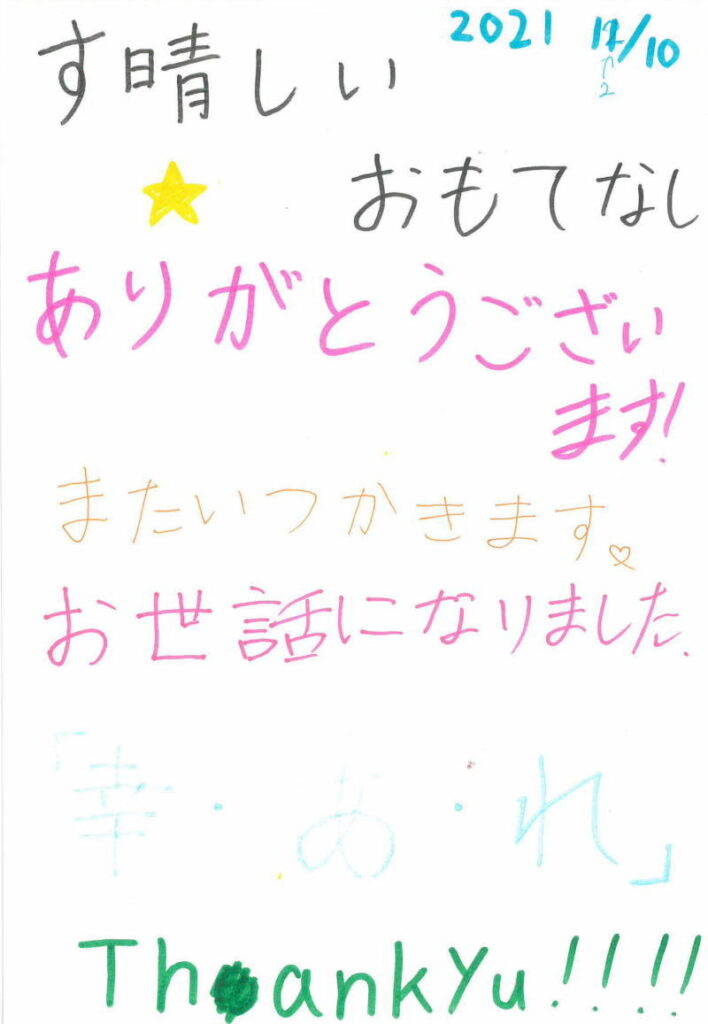 2021 12/10
す晴しい
おもてなし
ありがとうござい
ます!
またいつかきます。♡
お世話になりました.
「幸・あ・れ」
ThankYu!!!!